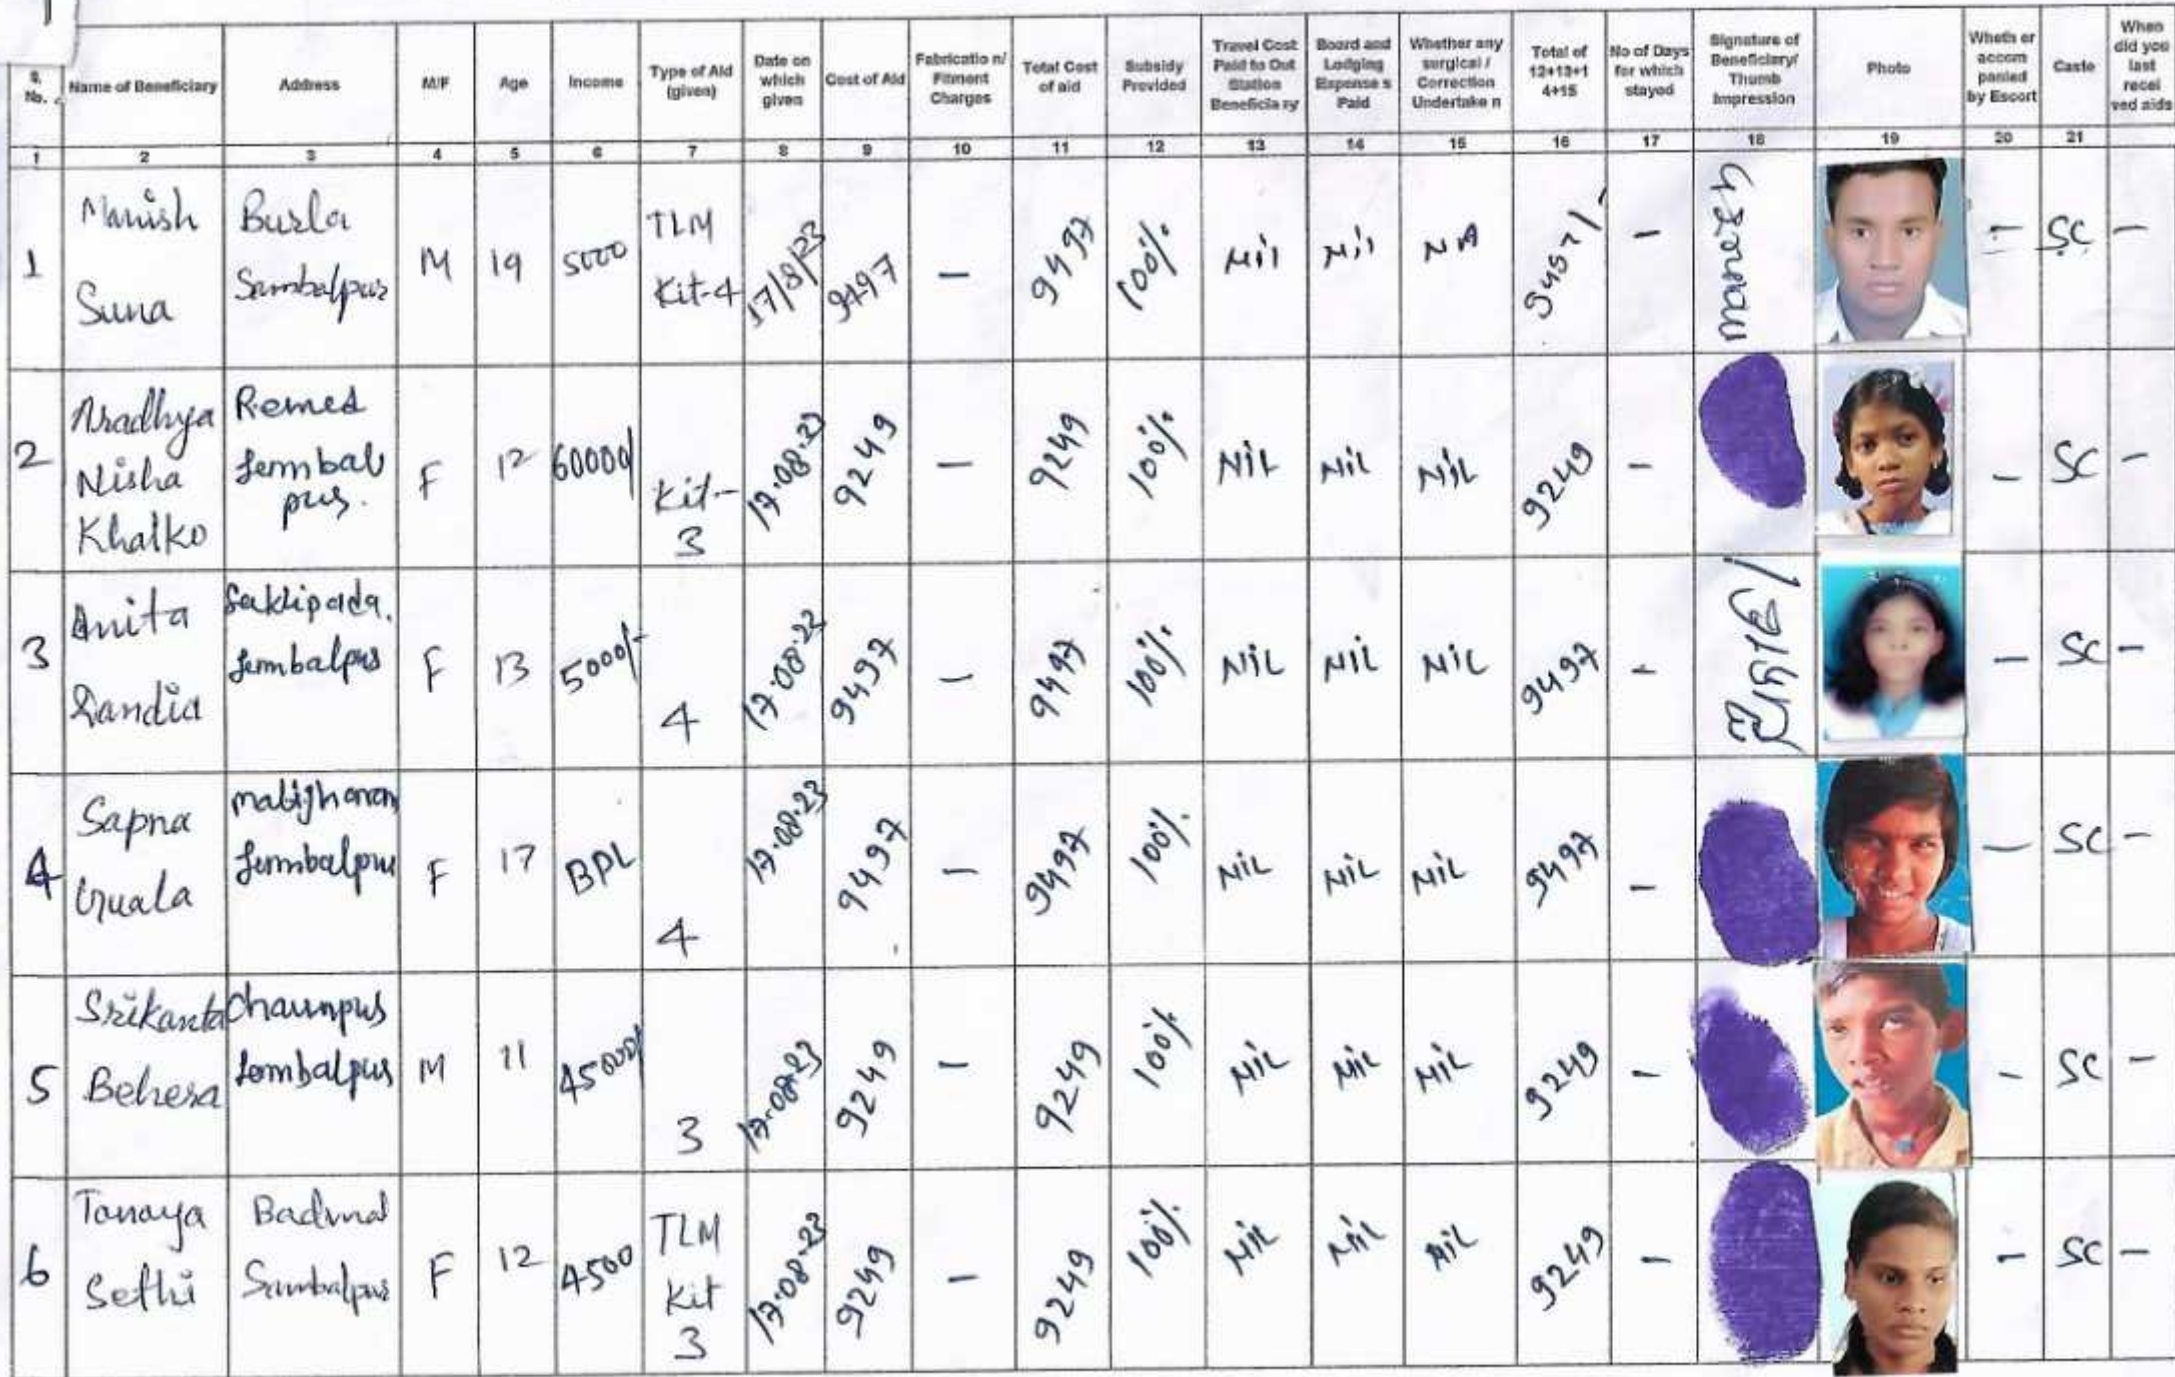 S. No. Name of Beneficiary Address M/F Age Income Type of Aid (given) Date on which given Cost of Aid Fabricatio n/ Fitment Charges Total Cost of aid Subsidy Provided Travel Cost Paid to Out Station Beneficia ry Board and Lodging Expense s Paid Whether any surgical / Correction Undertake n Total of 12+13+1 4+15 No of Days for which stayed Signature of Beneficiary/ Thumb Impression Photo Wheth er accom panied by Escort Caste When did you last recei ved aids
1 2 3 4 5 6 7 8 9 10 11 12 13 14 15 16 17 18 19 20 21
1 Manish Suna Burla Sambalpur M 19 5000 TLM Kit-4 17/8/23 9497 - 9497 100% Nil Nil NA 9497/- - - SC -
2 Aradhya Nisha Khalko Remed Sembal pur. F 12 60000/ Kit-3 17.08.23 9249 - 9249 100% NiL NiL NiL 9249 - - SC -
3 Anita Dandia Saktipada. Sembalpur F 13 5000/- 4 17.08.23 9497 - 9497 100% NiL NiL NiL 9497 - - SC -
4 Sapna Sembalpur F 17 BPL 4 17.08.23 9497 - 9497 100% NiL NiL NiL 9497 - - SC -
5 Srikanta Behera Sembalpur M 11 45000/ 3 17.08.23 9249 - 9249 100% NiL NiL NiL 9249 - - SC -
6 Tanaya Sethi Badmal Sambalpur F 12 4500 TLM Kit 3 17.08.23 9249 - 9249 100% NiL NiL NiL 9249 - - SC -